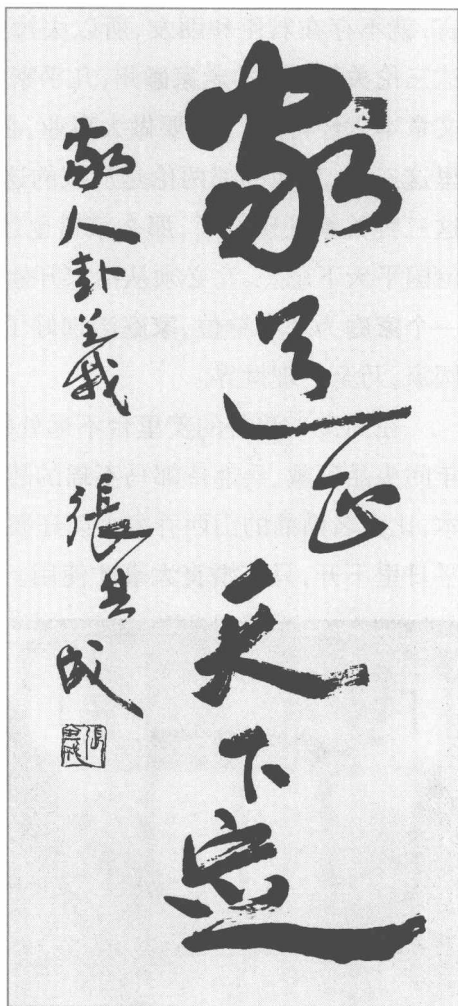 家道正天下定
家人卦義 張其成